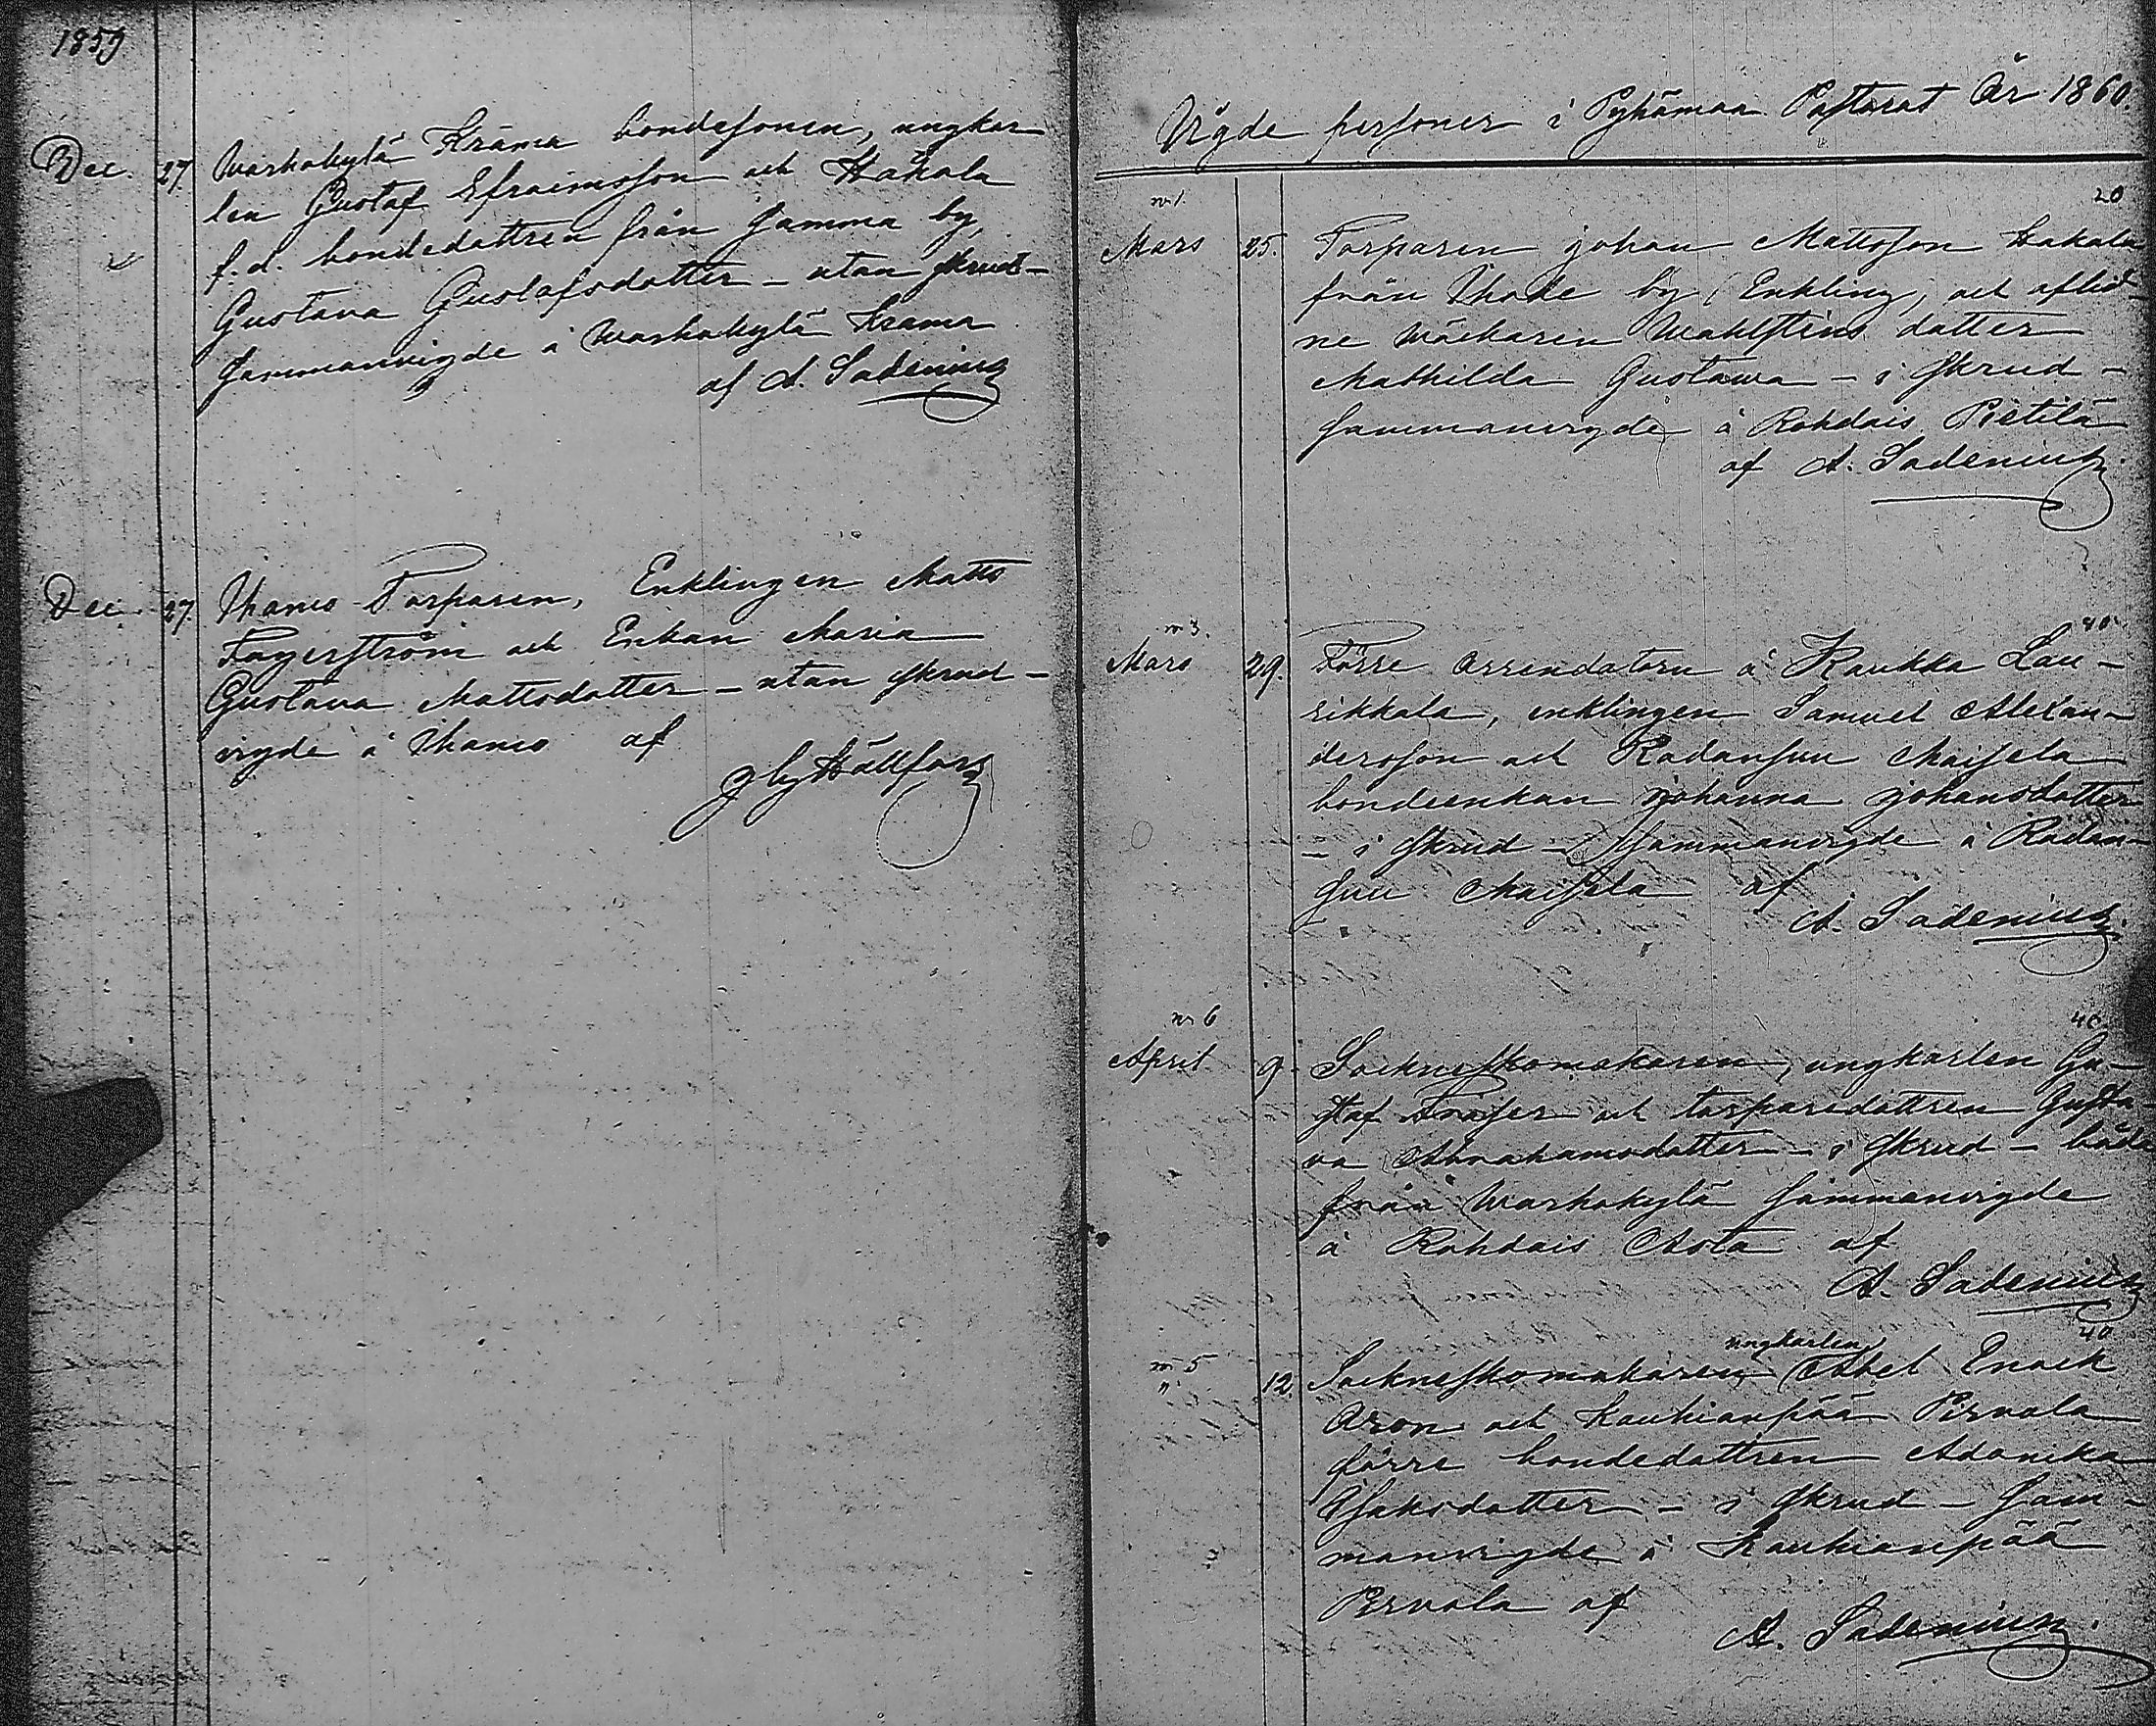 1859
Dec. 27. Warhokylä Kräma bondesonen, ungkar
len Gustaf Efraimsson och Hakala
f.d. bondedottren från Gamma by,
Gustava Gustafsdotter – utan skrud –
sammanvigde å Warhokylä Krama
af A. Sadenius
Dec. 27. Ihano Torparen, Enklingen Matts
Fagerström och Enkan Maria
Gustava Mattsdotter – utan skrud –
vigde å Ihano af
Hällfors
Vigde personer i Pyhämaa Pastorat År 1860
nr 1. 20
Mars 25. Torparen Johan Mattsson Hakala
från Ihode by (Enkling, och aflid-
ne Wäckaren Wahlstens dotter
Mathilda Gustawa – i skrud –
sammanvigde å Rohdais Pietilä
af A. Sadenius.
nr 3. 40
Mars 29. Förre Arrendatorn å Kaukka Lau-
rikkala, enklingen Samuel Alexan-
dersson och Radansuu Maisela
bondeenkan Johanna Johansdotter
– i skrud – sammanvigde å Radan-
suu Maisela af
A. Sadenius.
nr 6 40
April 9. Sockneskomakaren, ungkarlen Gu-
staf och torparedottren Gusta-
va Abrahamsdotter – i skrud – både
från Warhokylä sammanvigde
å Rohdais Asta af
A. Sadenius
ungkarlen 40
nr 5
" 12. Sockneskomakaren Abel Enoch
Aron och Kauhianpää Pervola
förre bondedottren Adamika
Isaksdotter – i skrud – sam-
manvigde å Kauhianpää
Pervola af
A. Sadenius.